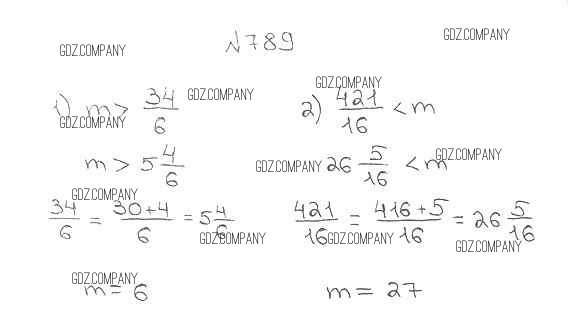 №789
GDZ.COMPANY GDZ.COMPANY
1) m > 34/6 GDZ.COMPANY
GDZ.COMPANY
2) 421/16 < m
GDZ.COMPANY
m > 5 4/6
GDZ.COMPANY 26 5/16 < m GDZ.COMPANY
GDZ.COMPANY
34/6 = 30+4/6 = 5 4/6
GDZ.COMPANY
421/16 = 416+5/16 = 26 5/16
GDZ.COMPANY GDZ.COMPANY
GDZ.COMPANY
m = 6
m = 27